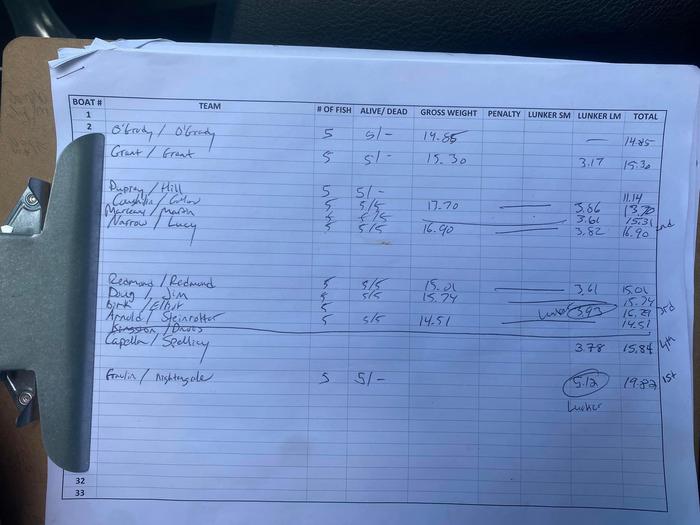 BOAT # TEAM # OF FISH ALIVE/ DEAD GROSS WEIGHT PENALTY LUNKER SM LUNKER LM TOTAL
1
2 O'Grady / O'Grady 5 5/- 14.85 — 14.85
Grant / Grant 5 5/- 15.30 3.17 15.30
Duprey / Hill 5 5/- 11.14
5 5/5 13.70 — 3.66 13.70
5/5 3.61 15.31
Narrow / Lucy 5 5/5 16.90 — 3.82 16.90 2nd
Redmond / Redmond 5 5/5 15.01 — 3.61 15.01
Doug / Jim 5 5/5 15.74 — 15.74
Birk / Elliot 5 Lunker 5.93 16.79 3rd
Arnold / Steinrotter 5 5/5 14.51 — 14.51
Kingston / Davis
Capella / Spelliey 3.78 15.84 4th
/ Nightengale 5 5/- 5.12 19.82 1st
Lunker
32
33